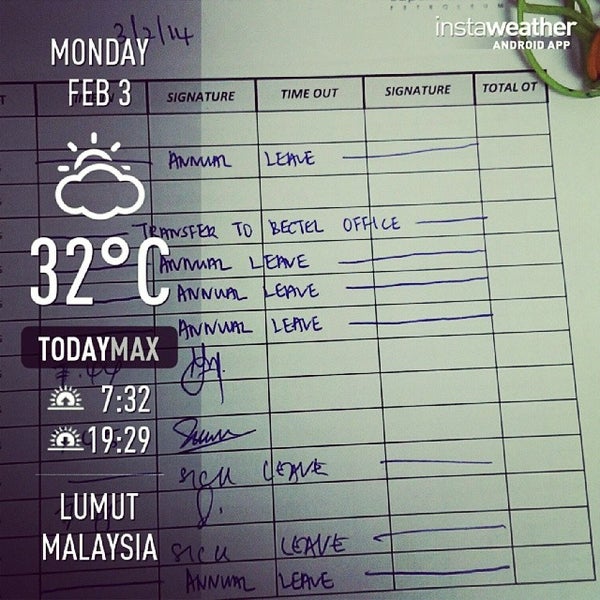 3/2/14
instaweather
ANDROID APP
MONDAY
FEB 3
SIGNATURE TIME OUT SIGNATURE TOTAL OT
ANNUAL LEAVE
TRANSFER TO BECTEL OFFICE
32°C
ANNUAL LEAVE
ANNUAL LEAVE
ANNUAL LEAVE
TODAYMAX
7:32
19:29
SICK LEAVE
LUMUT
MALAYSIA
SICK LEAVE
ANNUAL LEAVE